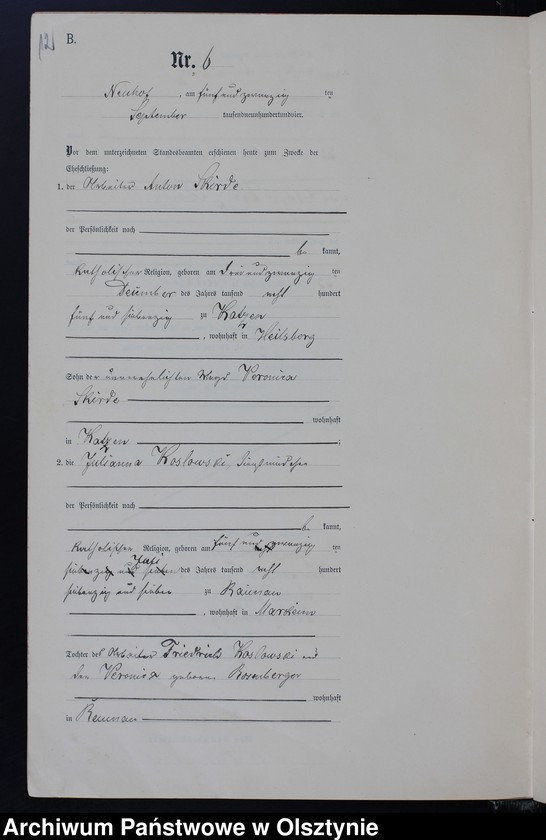 B.
Nr. 6
Neuhof, am fünf und zwanzig ten
September tausendneunhundertundvier.
Vor dem unterzeichneten Standesbeamten erschienen heute zum Zwecke der
Eheschließung:
1. der Arbeiter Anton Skirde
der Persönlichkeit nach
be kannt,
katholischer Religion, geboren am drei und zwanzig ten
Dezember des Jahres tausend acht hundert
fünf und siebenzig zu Katzen
, wohnhaft in Heilsberg
Sohn der unverehelichten Magd Veronica
Skirde
wohnhaft
in Katzen ;
2. die Julianna Koslowski,
der Persönlichkeit nach
be kannt,
katholischer Religion, geboren am fünf und zwanzig ten
Juni des Jahres tausend acht hundert
siebenzig und sieben zu Raunau
, wohnhaft in Markeim
Tochter des Arbeiter Friedrich Koslowski und
der Veronica geborene Rosenberger
wohnhaft
in Raunau
Archiwum Państwowe w Olsztynie